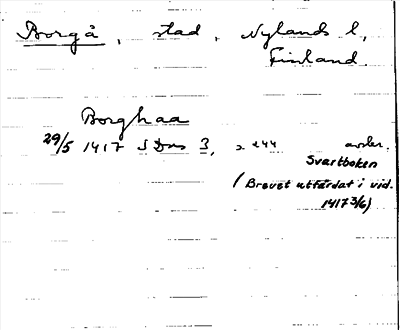 Borgå, stad, Nylands l.,
Finland.
Borghaa
29/5 1417 SDns 3, s. 244 avskr.
Svartboken
(Brevet utfärdat i vid.
1417 3/6)